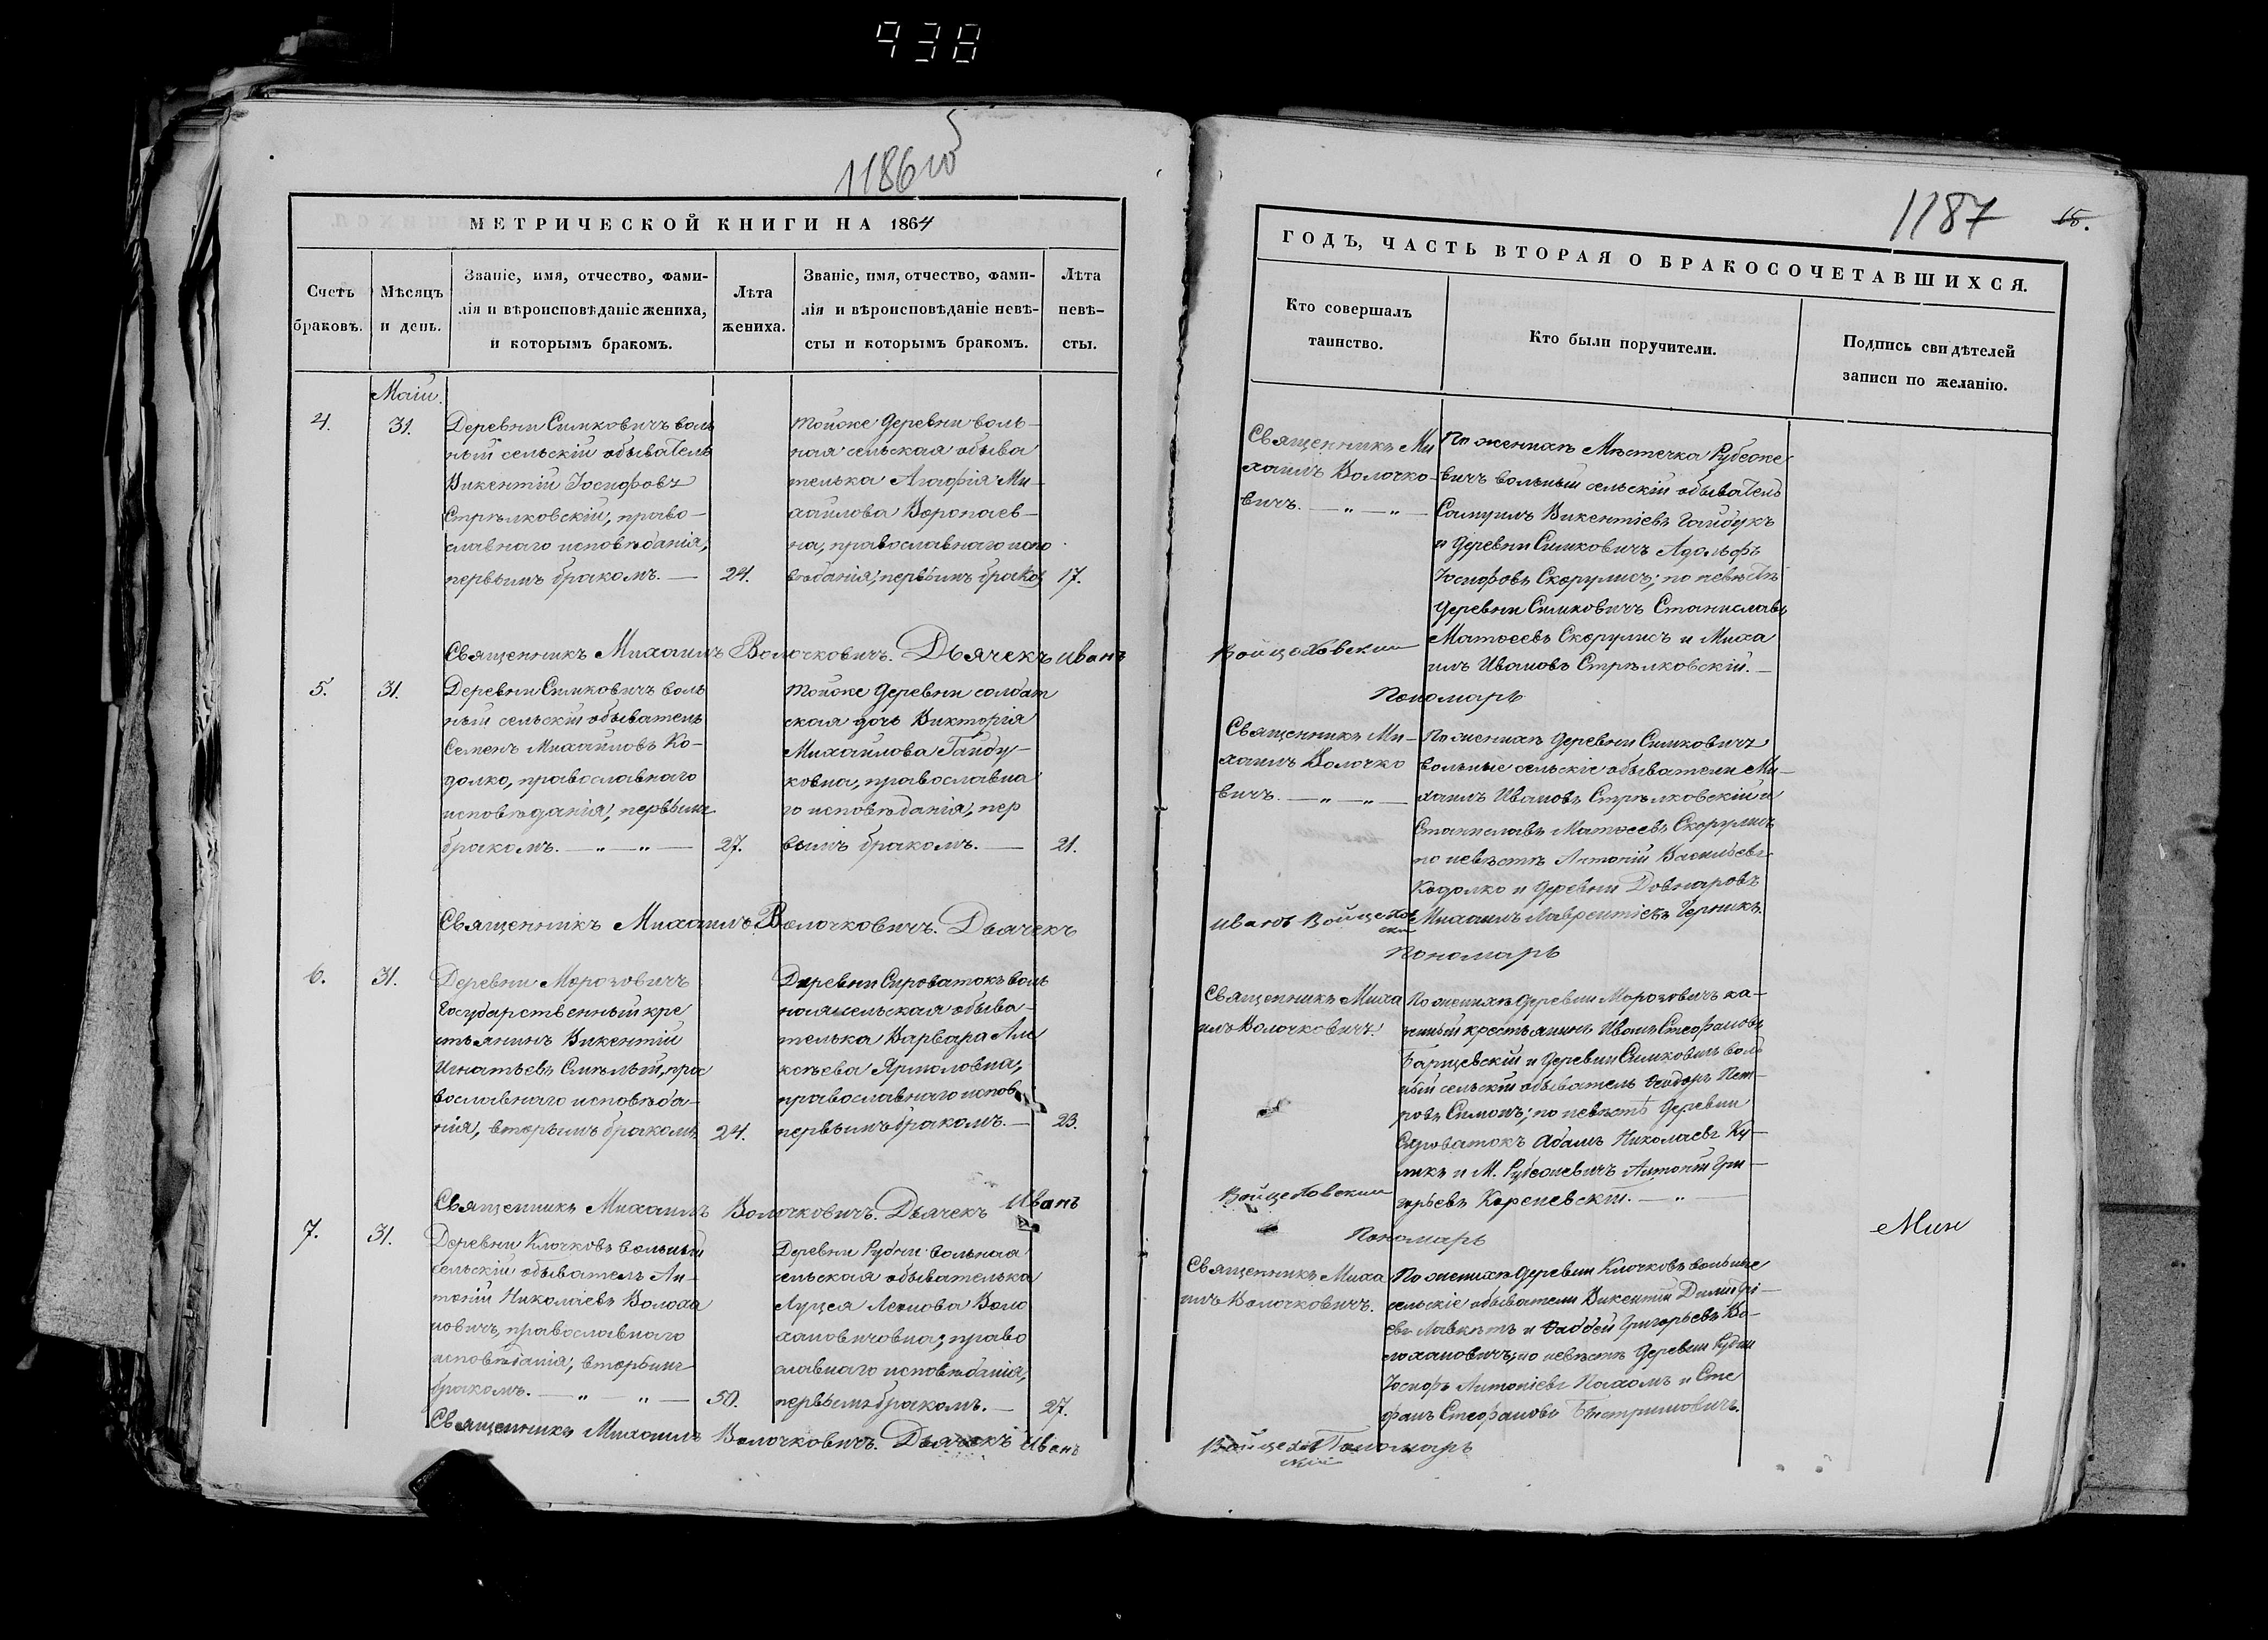 938
1186 об
МЕТРИЧЕСКОЙ КНИГИ НА 1864
Счетъ браковъ.
Мѣсяцъ и день.
Званіе, имя, отчество, фами-
лія и вѣроисповѣданіе жениха,
и которымъ бракомъ.
Лѣта жениха.
Званіе, имя, отчество, фами-
лія и вѣроисповѣданіе невѣ-
сты и которымъ бракомъ.
Лѣта невѣ-
сты.
Маій.
4.
31.
Деревни Симковичъ воль
ный сельскій обыватель
Викентій Іосифовъ
Стрѣлковскій, право-
славнаго исповѣданія,
первымъ бракомъ. —
24.
тойже деревни воль-
ная сельская обыва
телька Агафія Ми-
хайлова Воропаев-
на, православнаго испо
вѣданія, первымъ бракомъ
17.
Священникъ Михаилъ Волочковичъ. Дьячекъ Иванъ
5.
31.
Деревни Симковичъ воль
ный сельскій обыватель
Семенъ Михайловъ Ко-
долко, православнаго
исповѣданія, первымъ
бракомъ. — „ — „ —
27.
тойже деревни солдат
ская дочь Викторія
Михайлова Гайду-
ковна, православна
го исповѣданія, пер
вымъ бракомъ. —
21.
Священникъ Михаилъ Волочковичъ. Дьячекъ
6.
31.
Деревни Морозовичъ
Государственный кре
стьянинъ Викентій
Игнатьевъ Смѣлый, пра
вославнаго исповѣда-
нія, вторымъ бракомъ
24.
Деревни Сыроватокъ воль
ная сельская обыва-
телька Варвара Але
ксѣева Ярмоловна,
православнаго исповѣ
первымъ бракомъ. —
23.
Священникъ Михаилъ Волочковичъ. Дьячекъ Иванъ
7.
31.
Деревни Клочковъ вольный
сельскій обыватель Ан-
тоній Николаевъ Волоха
новичъ, православнаго
исповѣданія, вторымъ
бракомъ. — „ — „ —
50.
Деревни Рудни вольная
сельская обывателька
Луцея Леонова Воло
хановичовна, право
славнаго исповѣданія,
первымъ бракомъ. —
27.
Священникъ Михаилъ Волочковичъ. Дьячекъ Иванъ
1187
15.
ГОДЪ, ЧАСТЬ ВТОРАЯ О БРАКОСОЧЕТАВШИХСЯ.
Кто совершалъ
таинство.
Кто были поручители.
Подпись свидѣтелей
записи по желанію.
Священникъ Ми
хаилъ Волочко-
вичъ. — „ — „ —
По женихѣ Мѣстечка Рубеже
вичъ вольный сельскій обыватель
Самуилъ Викентіевъ Гайдукъ
и деревни Симковичъ Адольфъ
Іосифовъ Скорулисъ; по невѣстѣ
деревни Симковичъ Станиславъ
Матѳеевъ Скорулисъ и Миха
илъ Ивановъ Стрѣлковскій. —
Войцеховскій
Пономарь
Священникъ Ми-
хаилъ Волочко
вичъ. — „ — „ —
По женихѣ деревни Симковичъ
вольные сельскіе обыватели Ми-
хаилъ Ивановъ Стрѣлковскій и
Станиславъ Матѳеевъ Скорулисъ
по невѣстѣ Антоній Васильевъ
Кодолко и деревни Довнаровъ
Михаилъ Лаврентіевъ Черникъ.
Иванъ Войцехов
скій
Пономарь
Священникъ Миха
илъ Волочковичъ.
По женихѣ деревни Морозовичъ ка-
зенный крестьянинъ Иванъ Стефановъ
Барщевскій и деревни Симковичъ воль
ный сельскій обыватель Ѳеодоръ Пет-
ровъ Симонъ; по невѣстѣ деревни
Сыроватокъ Адамъ Николаевъ Ку-
ликъ и М. Рубежевичъ Антоній Гри-
горьевъ Кореневскій. — „ —
Войцеховскій
Пономарь
Мин
Священникъ Миха
илъ Волочковичъ.
По женихѣ деревни Клочковъ вольные
сельскіе обыватели Викентій Димитрі-
евъ и Ѳаддей Григорьевъ Во-
лохановичъ; по невѣстѣ деревни Рудни
Іосифъ Антоніевъ Пахомъ и Сте
фанъ Стефановъ Быстримовичъ.
Войцехов
скій
Пономарь